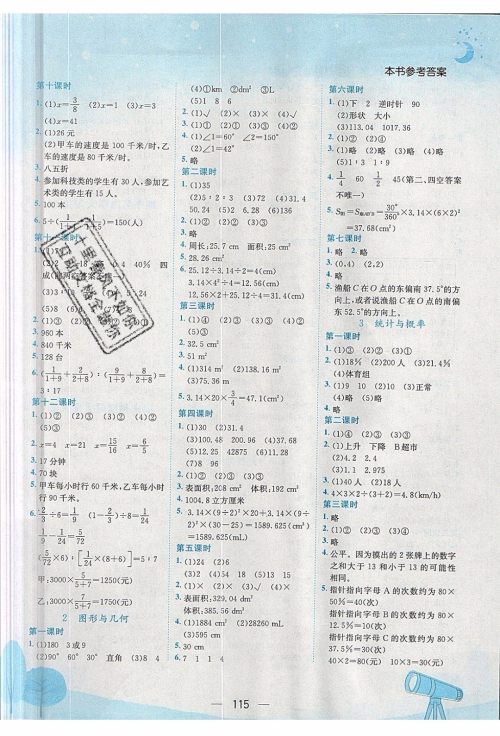 本书参考答案
第十课时
1.(1)x=3/8 (2)x=1 (3)x=3
(4)x=41
2.(1)26元
(2)甲车的速度是 100 千米/时,乙
车的速度是 80 千米/时。
3.八五折
4.参加科技类的学生有 30 人,参加艺
术类的学生有 15 人。
5.100本
第十一课时
3.960本
4.840千米
5.128台
第十二课时
1.(1)② (2)③ (3)② (4)②
(5)③
2.x=4 x=21 x=15/16 x=6/5
3.17分钟
4.70块
5.甲车每小时行 60 千米,乙车每小时
行 90 千米。
(5/72×6):[1/24×(8+6)]=5:7
甲:3000×5/(5+7)=1250(元)
乙:3000×7/(5+7)=1750(元)
2 图形与几何
第一课时
1.(1)180 3或9
(2)90° 60° 30° 直角 (3)8 4
(4)①km ②dm² ③L
(5)1 8 6
2.(1)√ (2)× (3)× (4)√
3.(1)① (2)① (3)② (4)②
4.(1)∠1=60° ∠2=150°
(2)∠1=42°
5.略
第二课时
1.(1)35
(2)5:2:3 (3)72 (4)31.4
50.24 (5)2 (6)128
2.(1)② (2)② (3)② (4)②
3.略
4.周长:25.7 cm 面积:25 cm²
5.28.26 cm²
6.25.12÷3.14÷2=4(cm)
3.14×4²÷4=12.56(cm²)
12.56×2+25.12÷4=31.4(cm)
第三课时
1.(1)④ (2)③ (3)③ (4)② (5)③
2.32.5 cm²
3.51 m²
4.(1)314 m² (2)138.16 m²
(3)75.36 m
5.3.14×20×3/4=47.1(cm²)
第四课时
1.(1)30 (2)31.4
(3)100.48 200.96 (4)37.68
(5)12.25 42875 (6)11.28
(7)8 96
2.(1)③ (2)③ (3)② (4)②
3.表面积:208 cm² 体积:192 cm³
4.1004.8立方厘米
5.3.14×(9÷2)²×20+3.14×(9÷
2)²×(30-25)=1589.625(cm³)
=1589.625(mL)
第五课时
1.(1)24 (2)6
(3)2 (4)54 18 (5)13 15
2.(1)× (2)√ (3)√ (4)×
3.表面积:329.04 dm²
体积:385.56 dm³
4.(1)1884 cm² (2)28260 mL
(3)595 cm
5.30 cm
6.7 1 1 4
第六课时
1.(1)下 2 逆时针 90
(2)形状 大小
(3)113.04 1017.36
2.(1)② (2)③ (3)②
3.(1)略 (2)略 (3)略 (4)略
(5)1:3 1:9
4.1/4 60 1/4 45(第二、四空答案
不唯一)
=37.68(cm²)
第七课时
1.略 2.略
3.(0,4) (2,2)
4.略
5.渔船 C 在 O 点的东偏南 37.5°的方
向上,或者说渔船 C 在 O 点的南偏
东 52.5°的方向上。
3 统计与概率
第一课时
1.(1)18% (2)√200人 (3)21.4%
(4)体育组
2.(1)略 (2)9 (3)10 (3)正常
3.(1)略 (2)× (3)√
4.略
第二课时
1.(1)④ (2)③ (3)②
2.(1)上升 下降 B超市
(2)4 2
(3)1.1 2.975
3.(1)略
4.4×3×2÷(3+2)=4.8(km/h)
第三课时
1.略
2.(1)① (2)② (3)④
3.略
4.公平。因为摸出的 2 张牌上的数字
之和大于 13 和小于 13 的可能性
相等。
5.指针指向字母 A 的次数约为 80×
50%=40(次)
指针指向字母 B 的次数约为 80×
12.5%=10(次)
指针指向字母 C 的次数约为 80×
37.5%=30(次)
40×2=80(元) 10×3=30(元)
115